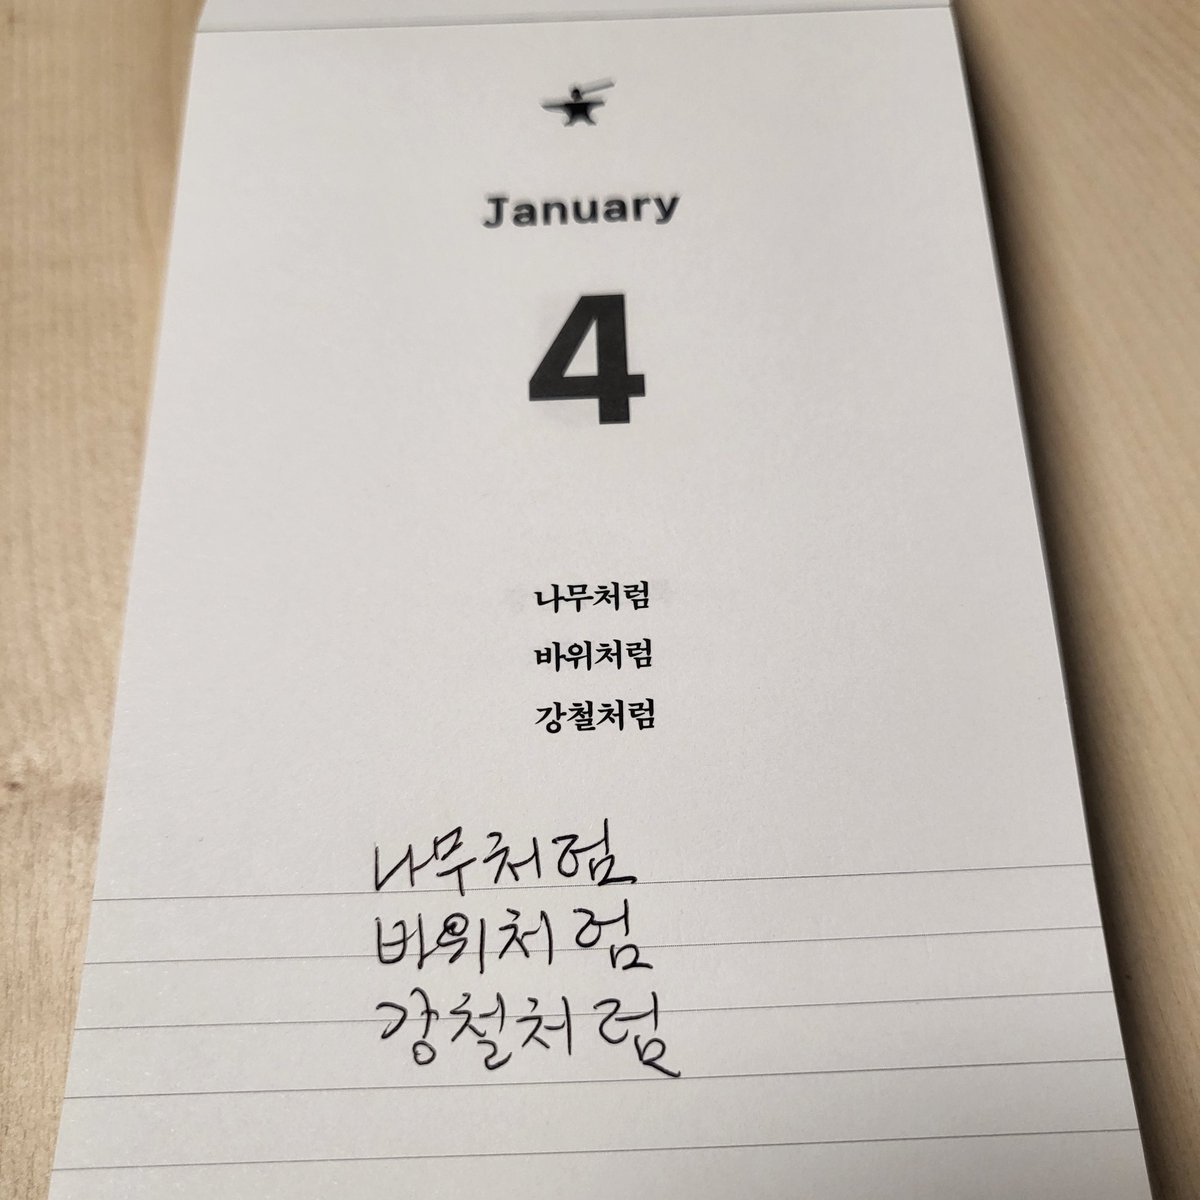 January
4
나무처럼
바위처럼
강철처럼
나무처럼
바위처럼
강철처럼